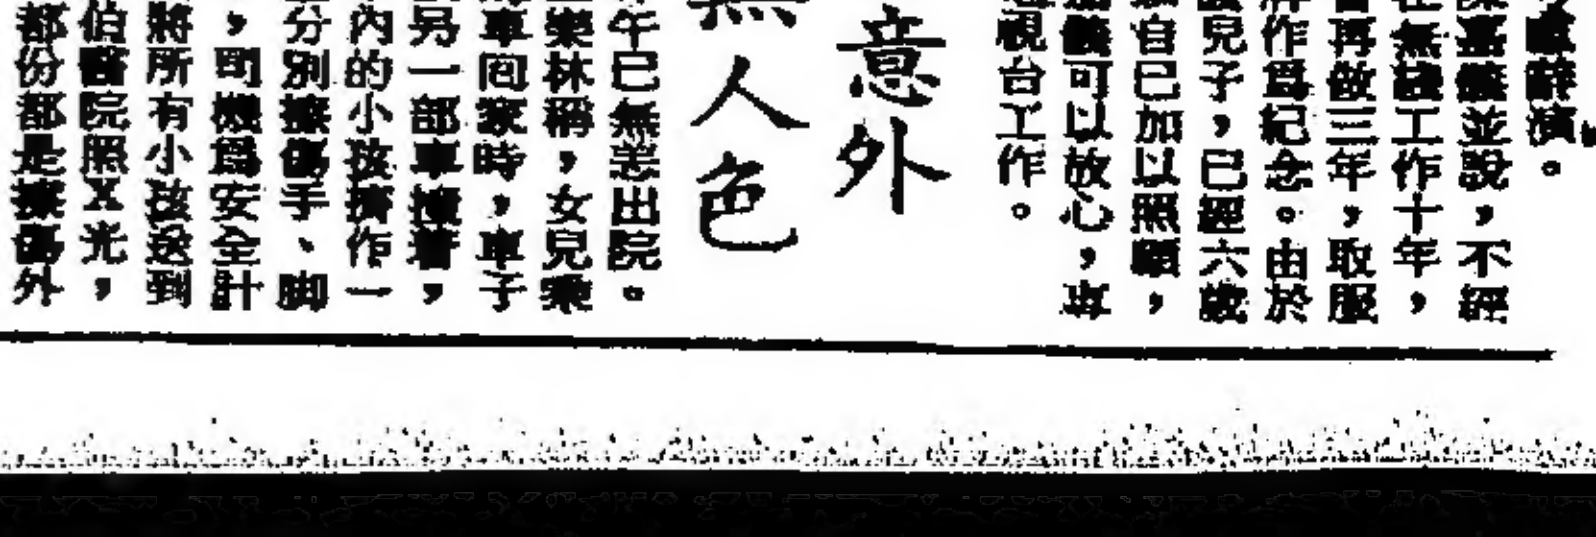 辭演。
嘉儀並說，不經
在無綫工作十年，
再做三年，取服
作爲紀念。由於
兒子，已經六歲
自己加以照顧，
可以放心，專
視台工作。
意外
無人色
午已無恙出院。
樂林稱，女兒乘
車回家時，車子
另一部車撞着，
內的小孩擠作一
分別擦傷手、脚
，司機爲安全計
將所有小孩送到
伯醫院照X光，
都份都是擦傷外